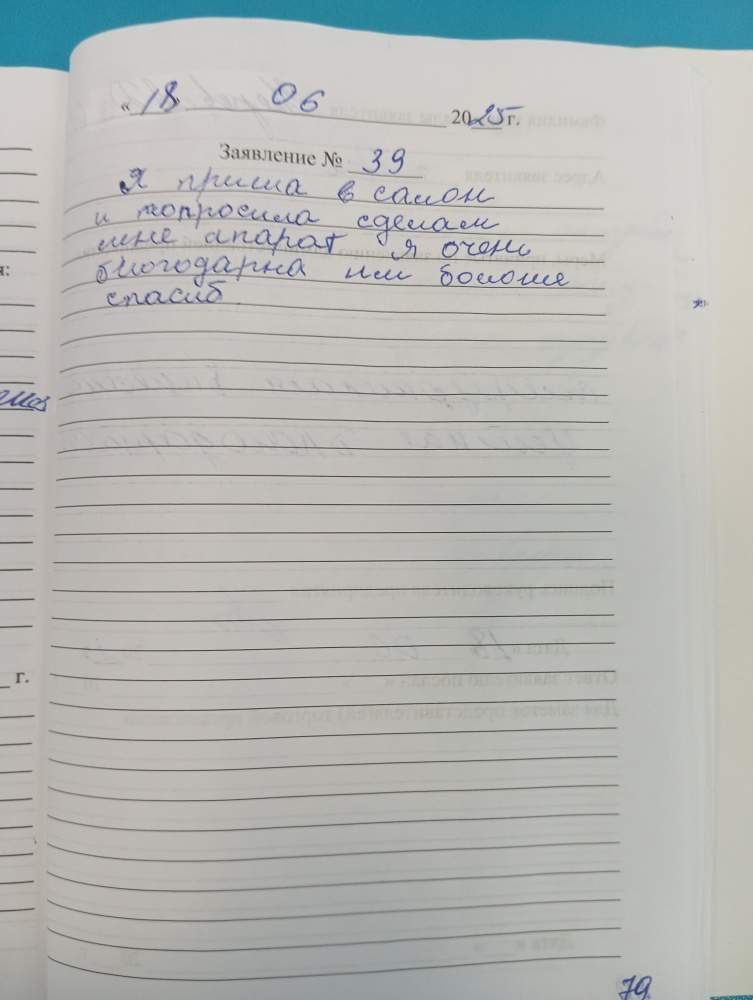 « 18 » 06 2025 г.
Заявление № 39
Я приша в салон
и попросила сделам
мне апарат я очень
благодарна им большие
спасиб
я:
г.
79